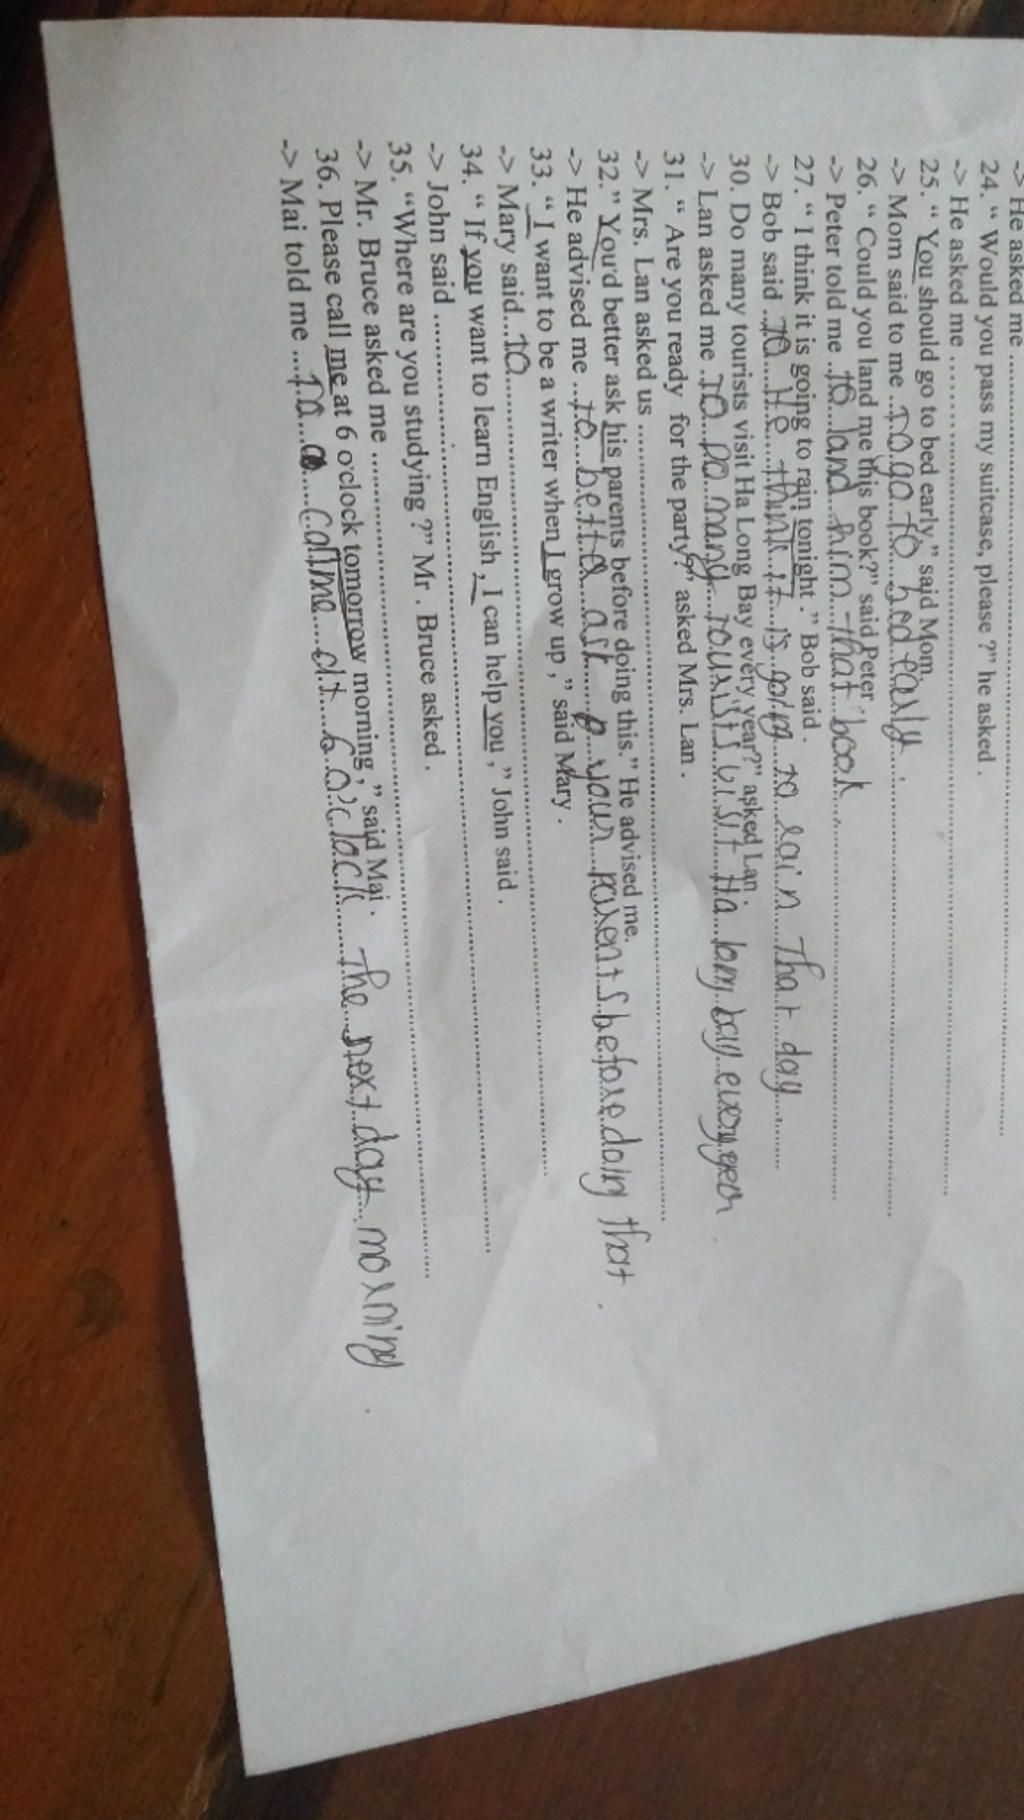 -> He asked me ........................
24. “ Would you pass my suitcase, please ?” he asked .
-> He asked me ........................
25. “ You should go to bed early,” said Mom.
-> Mom said to me ..To go to bed early .
26. “ Could you land me this book?” said Peter .
-> Peter told me ..to land him that book
27. “ I think it is going to rain tonight .” Bob said .
-> Bob said ..To He think it is going to rain That day
30. Do many tourists visit Ha Long Bay every year?” asked Lan .
-> Lan asked me ..To Do many tourists visit Ha long bay every year .
31. “ Are you ready for the party?” asked Mrs. Lan .
-> Mrs. Lan asked us ........................
32.” You'd better ask his parents before doing this.” He advised me.
-> He advised me ...to better ask your parents before doing that .
33. “ I want to be a writer when I grow up ,” said Mary .
-> Mary said...To........................
34. “ If you want to learn English , I can help you ,” John said .
-> John said ........................
35. “Where are you studying ?” Mr . Bruce asked .
-> Mr. Bruce asked me ........................
36. Please call me at 6 o'clock tomorrow morning ,” said Mai .
-> Mai told me ...To calme at 6 o'clock The next day morning .